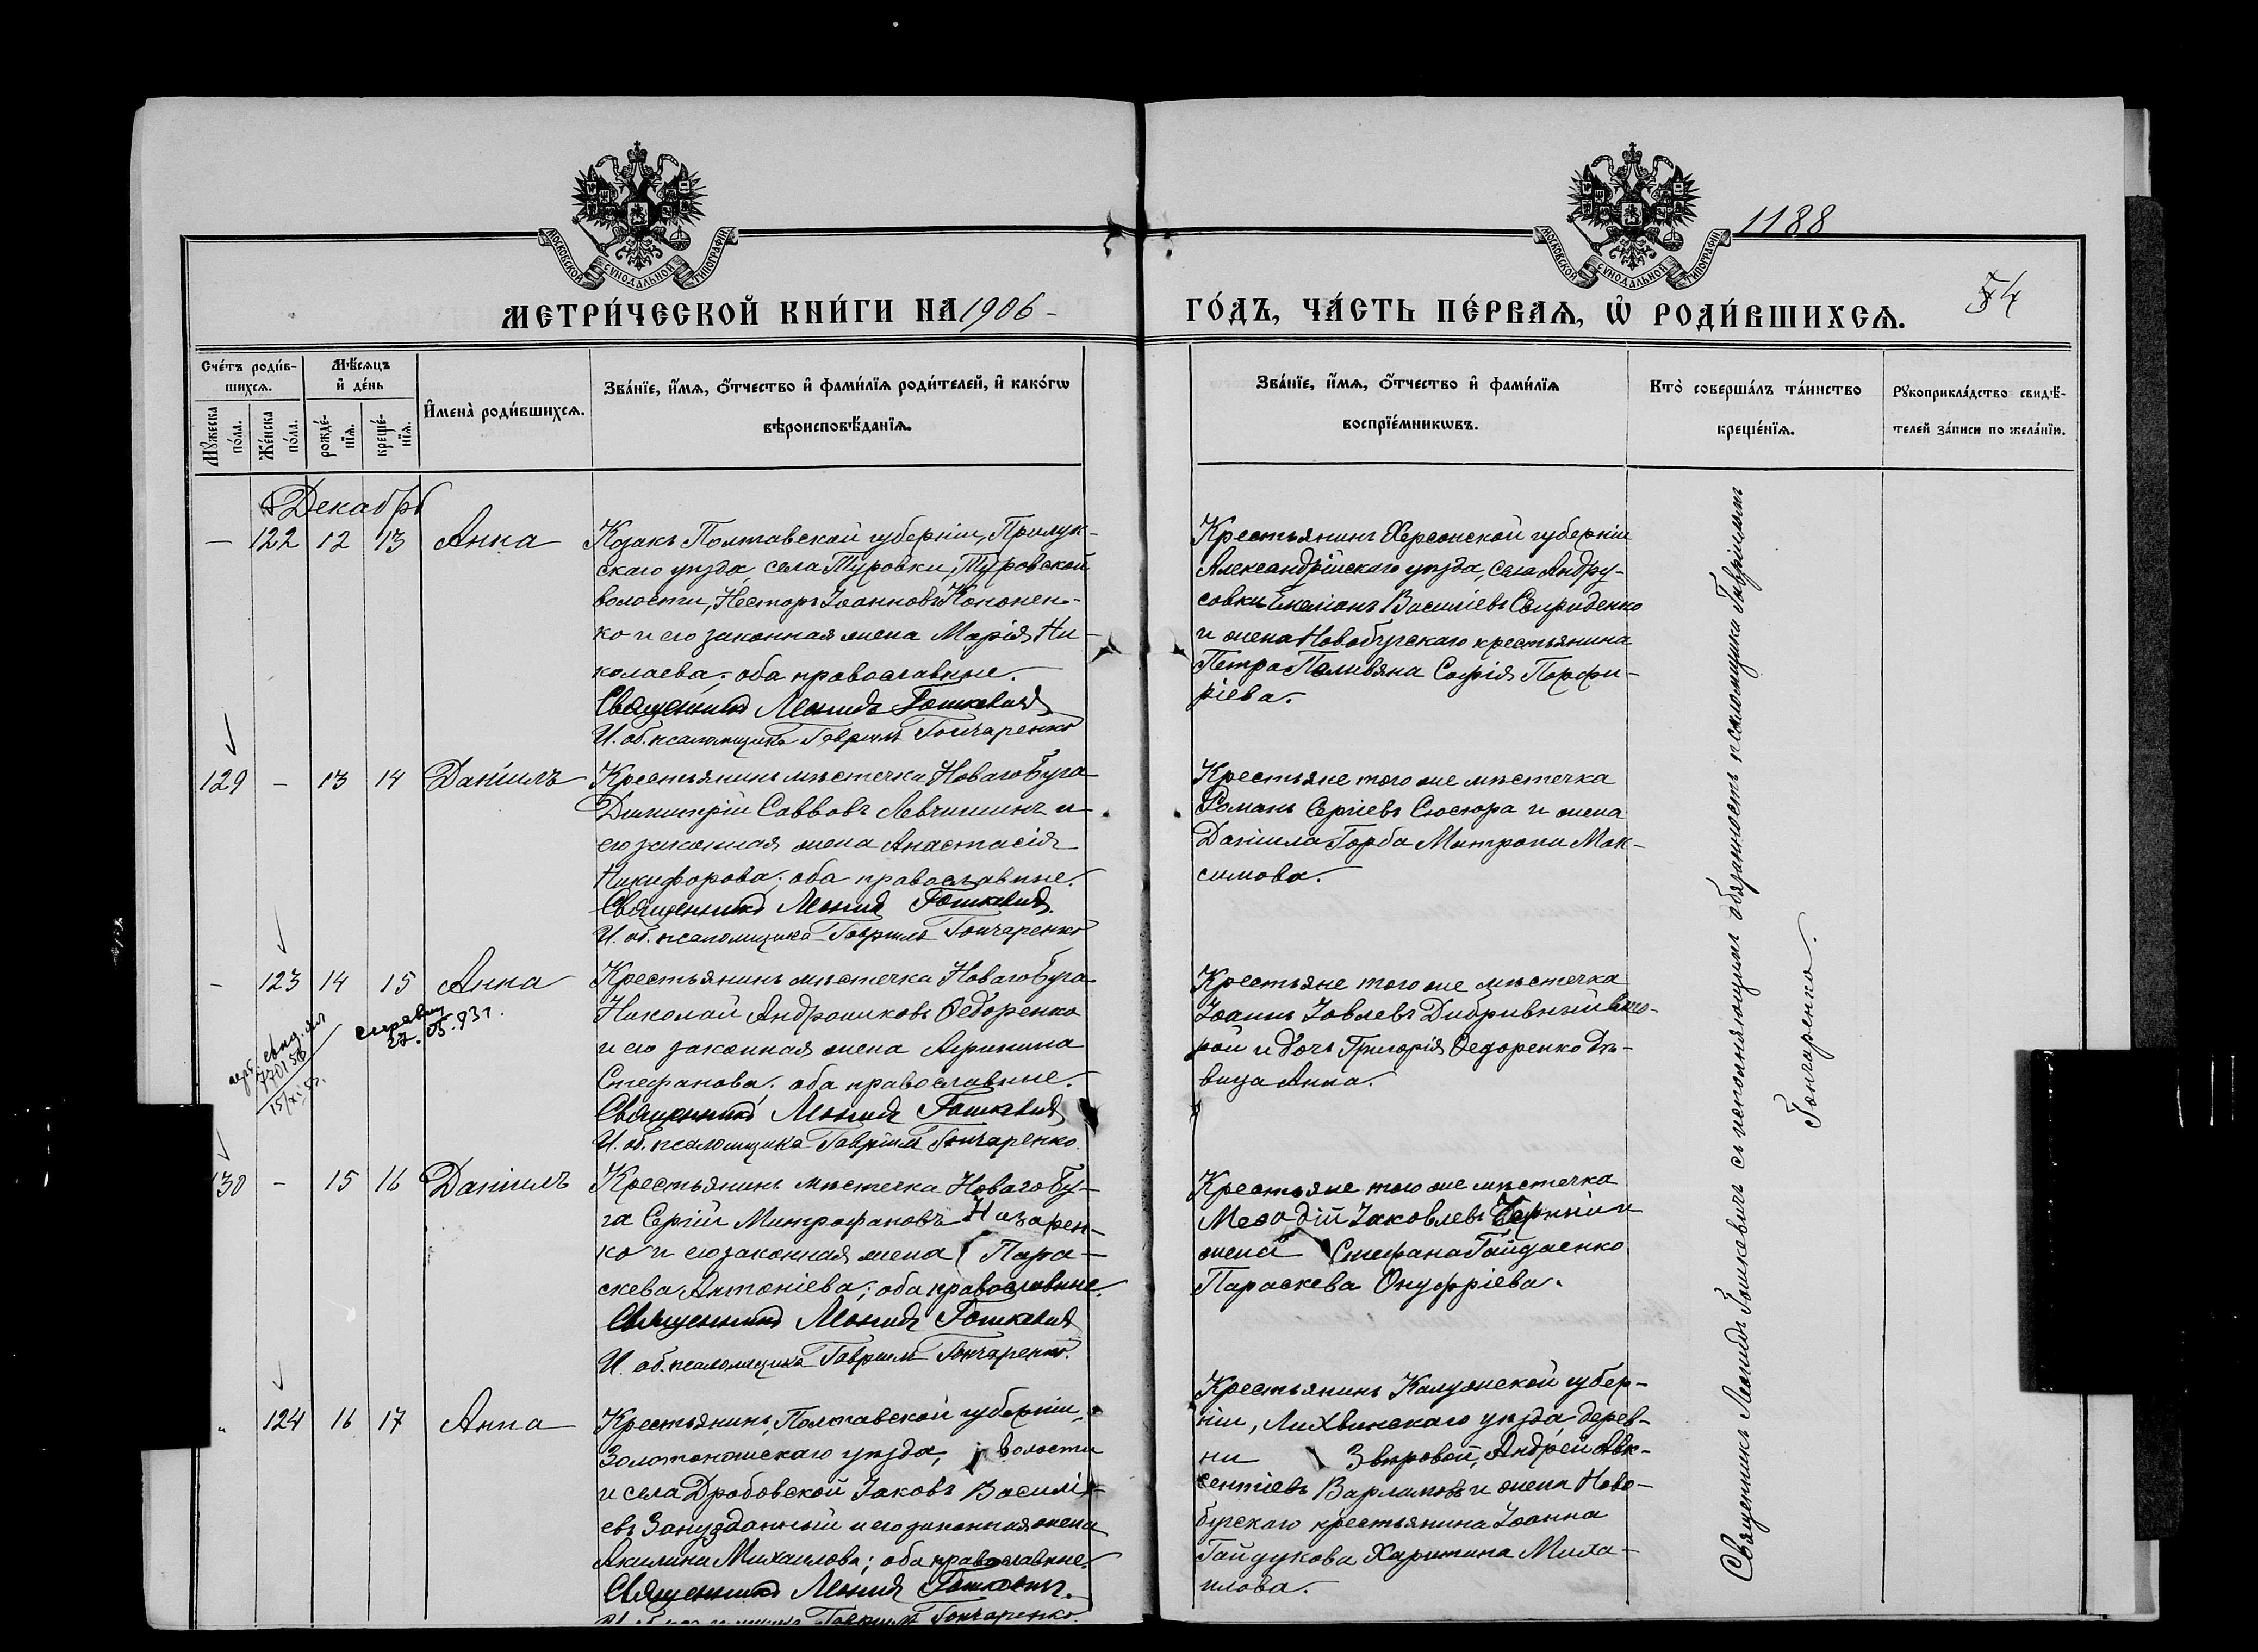 1188
54
МОСКОВСКОЙ СУНОДАЛЬНОЙ ТИПОГРАФІИ
МОСКОВСКОЙ СУНОДАЛЬНОЙ ТИПОГРАФІИ
МЕТРИ́ЧЕСКОЙ КНИ́ГИ НА 1906 -
ГО́ДЪ, ЧА́СТЬ ПЕ́РВАѦ, Ѡ҆ РОДИ́ВШИХСѦ.
Сче́тъ роди́в-
шихсѧ.
Мꙋ́жеска
по́ла.
Же́нска
по́ла.
Мѣ́сѧцъ
и҆ де́нь
рожде́-
нїѧ.
креще́-
нїѧ.
И҆мена̀ роди́вшихсѧ.
Зва́нїе, и҆́мѧ, ѻ҆́тчество и҆ фами́лїѧ роди́телей, и҆ како́гѡ
вѣроисповѣ́данїѧ.
Зва́нїе, и҆́мѧ, ѻ҆́тчество и҆ фами́лїѧ
воспрїе́мникѡвъ.
Кто̀ соверша́лъ та́инство
креще́нїѧ.
Рꙋкоприкла́дство свидѣ́-
телей за́писи по жела́нїю.
Декабрь
— 122 12 13 Анна
Козакъ Полтавской губерніи, Прилук-
скаго уѣзда, села Туровки, Туровской
волости, Несторъ Іоанновъ Кононен-
ко и его законная жена Марія Ни-
колаева; оба православные.
Священникъ Леонидъ Гошкевичъ
И. об. псаломщика Гавріилъ Гончаренко
Крестьянинъ Херсонской губерніи
Александрійскаго уѣзда, села Андру-
совки Емеліанъ Василіевъ Свириденко
и жена Новобугскаго крестьянина
Петра Поливяна Софія Порфи-
ріева.
129 — 13 14 Даніилъ
Крестьянинъ мѣстечка Новаго Буга
Димитрій Саввовъ Левчишинъ и
его законная жена Анастасія
Никифорова; оба православные.
Священникъ Леонидъ Гошкевичъ
И. об. псаломщика Гавріилъ Гончаренко
Крестьяне того же мѣстечка
Романъ Сергіевъ Сюсюра и жена
Даніила Горба Митрона Мак-
симова.
- 123 14 15 Анна
справку
27.05.93г.
77015б
15/XI
Крестьянинъ мѣстечка Новаго Буга
Николай Андрониковъ Ѳедоренко
и его законная жена Агрипина
Стефанова; оба православные.
Священникъ Леонидъ Гошкевичъ
И. об. псаломщика Гавріилъ Гончаренко
Крестьяне того же мѣстечка
Іоаннъ Іовлевъ Дибривный вто-
рой и дочь Григорія Ѳедоренко дѣ-
вица Анна.
130 - 15 16 Даніилъ
Крестьянинъ мѣстечка Новаго Бу-
га Сергій Митрофановъ Назарен-
ко и его законная жена Пара-
скева Антоніева; оба православные.
Священникъ Леонидъ Гошкевичъ
И. об. псаломщика Гавріилъ Гончаренко.
Крестьяне того же мѣстечка
Меѳодій Іаковлевъ Черній и
жена Стефана Гайдаенко
Параскева Онуфріева.
„ 124 16 17 Анна
Крестьянинъ, Полтавской губерніи,
Золотоношскаго уѣзда, волости
и села Дробовской Іаковъ Василі-
евъ Занузданный и его законная жена
Акилина Михаилова; оба православные.
Священникъ Леонидъ Гошкевичъ.
И. об. псаломщика Гавріилъ Гончаренко.
Крестьянинъ Калужской губер-
ніи, Лихвинскаго уѣзда, дерев-
ни Звѣровой, Андрей Авк-
сентіевъ Варламовъ и жена Ново-
бугскаго крестьянина Іоанна
Гайдукова Харитина Миха-
илова.
Священникъ Леонидъ Гошкевичъ съ исполняющимъ обязанность псаломщика Гавріиломъ
Гончаренко.